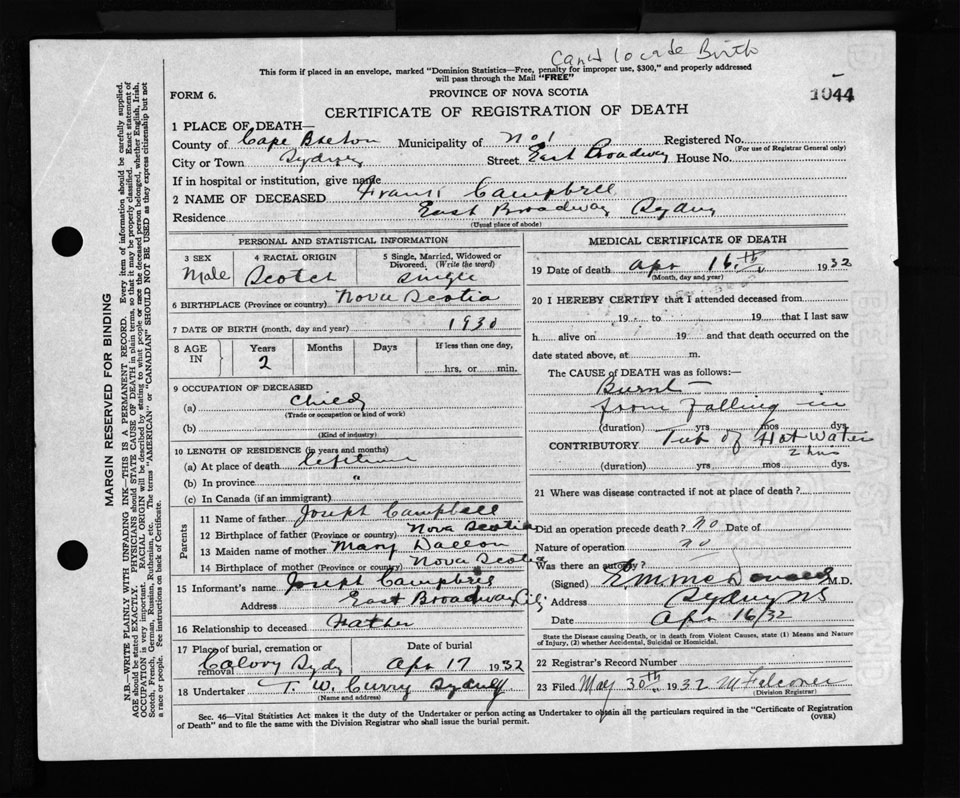 Cannot locate Birth
This form if placed in an envelope, marked "Dominion Statistics—Free, penalty for improper use, $300," and properly addressed
will pass through the Mail "FREE"
FORM 6.
PROVINCE OF NOVA SCOTIA
1044
CERTIFICATE OF REGISTRATION OF DEATH
1 PLACE OF DEATH—
County of Cape Breton Municipality of No. 1 Registered No.
(For use of Registrar General only)
City or Town Sydney Street East Broadway House No.
If in hospital or institution, give name
2 NAME OF DECEASED Campbell
Residence East Broadway Sydney
(Usual place of abode)
PERSONAL AND STATISTICAL INFORMATION
3 SEX 4 RACIAL ORIGIN 5 Single, Married, Widowed or Divorced, (Write the word)
Male Scotch Single
6 BIRTHPLACE (Province or country) Nova Scotia
7 DATE OF BIRTH (month, day and year) 1930
8 AGE IN Years Months Days If less than one day,
2 hrs. or min.
9 OCCUPATION OF DECEASED
(a) Child
(Trade or occupation or kind of work)
(b)
(Kind of industry)
10 LENGTH OF RESIDENCE (in years and months)
(a) At place of death lifetime
(b) In province "
(c) In Canada (if an immigrant)
Parents
11 Name of father Joseph Campbell
12 Birthplace of father (Province or country) Nova Scotia
13 Maiden name of mother Mary
14 Birthplace of mother (Province or country) Nova Scotia
15 Informant's name Joseph Campbell
Address East Broadway City
16 Relationship to deceased Father
17 Place of burial, cremation or removal Date of burial
Calvary Sydy Apr 17 1932
18 Undertaker T. W. Curry Sydney
(Name and address)
MEDICAL CERTIFICATE OF DEATH
19 Date of death Apr 16th 1932
(Month, day and year)
20 I HEREBY CERTIFY that I attended deceased from
19 to 19 that I last saw
h alive on 19 and that death occurred on the
date stated above, at m.
The CAUSE OF DEATH was as follows:—
Burnt —
from falling in
(duration) yrs mos dys.
CONTRIBUTORY Tub of Hot Water
2 hrs
(duration) yrs mos dys.
21 Where was disease contracted if not at place of death?
Did an operation precede death? no Date of
Nature of operation no
Was there an autopsy?
(Signed) McDonald M.D.
Address Sydney NS
Date Apr 16/32
State the Disease causing Death, or in death from Violent Causes, state (1) Means and Nature
of Injury, (2) whether Accidental, Suicidal or Homicidal.
22 Registrar's Record Number
23 Filed May 30th 1932 M Falconer
(Division Registrar)
Sec. 46—Vital Statistics Act makes it the duty of the Undertaker or person acting as Undertaker to obtain all the particulars required in the "Certificate of Registration
of Death" and to file the same with the Division Registrar who shall issue the burial permit. (OVER)
MARGIN RESERVED FOR BINDING
N.B.—WRITE PLAINLY WITH UNFADING INK—THIS IS A PERMANENT RECORD. Every item of information should be carefully supplied.
AGE should be stated EXACTLY. PHYSICIANS should STATE CAUSE OF DEATH in plain terms, so that it may be properly classified. Exact statement of
OCCUPATION is very important. RACIAL ORIGIN will be described by stating to what people or race the deceased person belonged, whether English, Irish,
Scotch, French, German, Russian, Ruthenian, etc. The terms "AMERICAN" or "CANADIAN" SHOULD NOT BE USED as they express citizenship but not
a race or people. See instructions on back of Certificate.